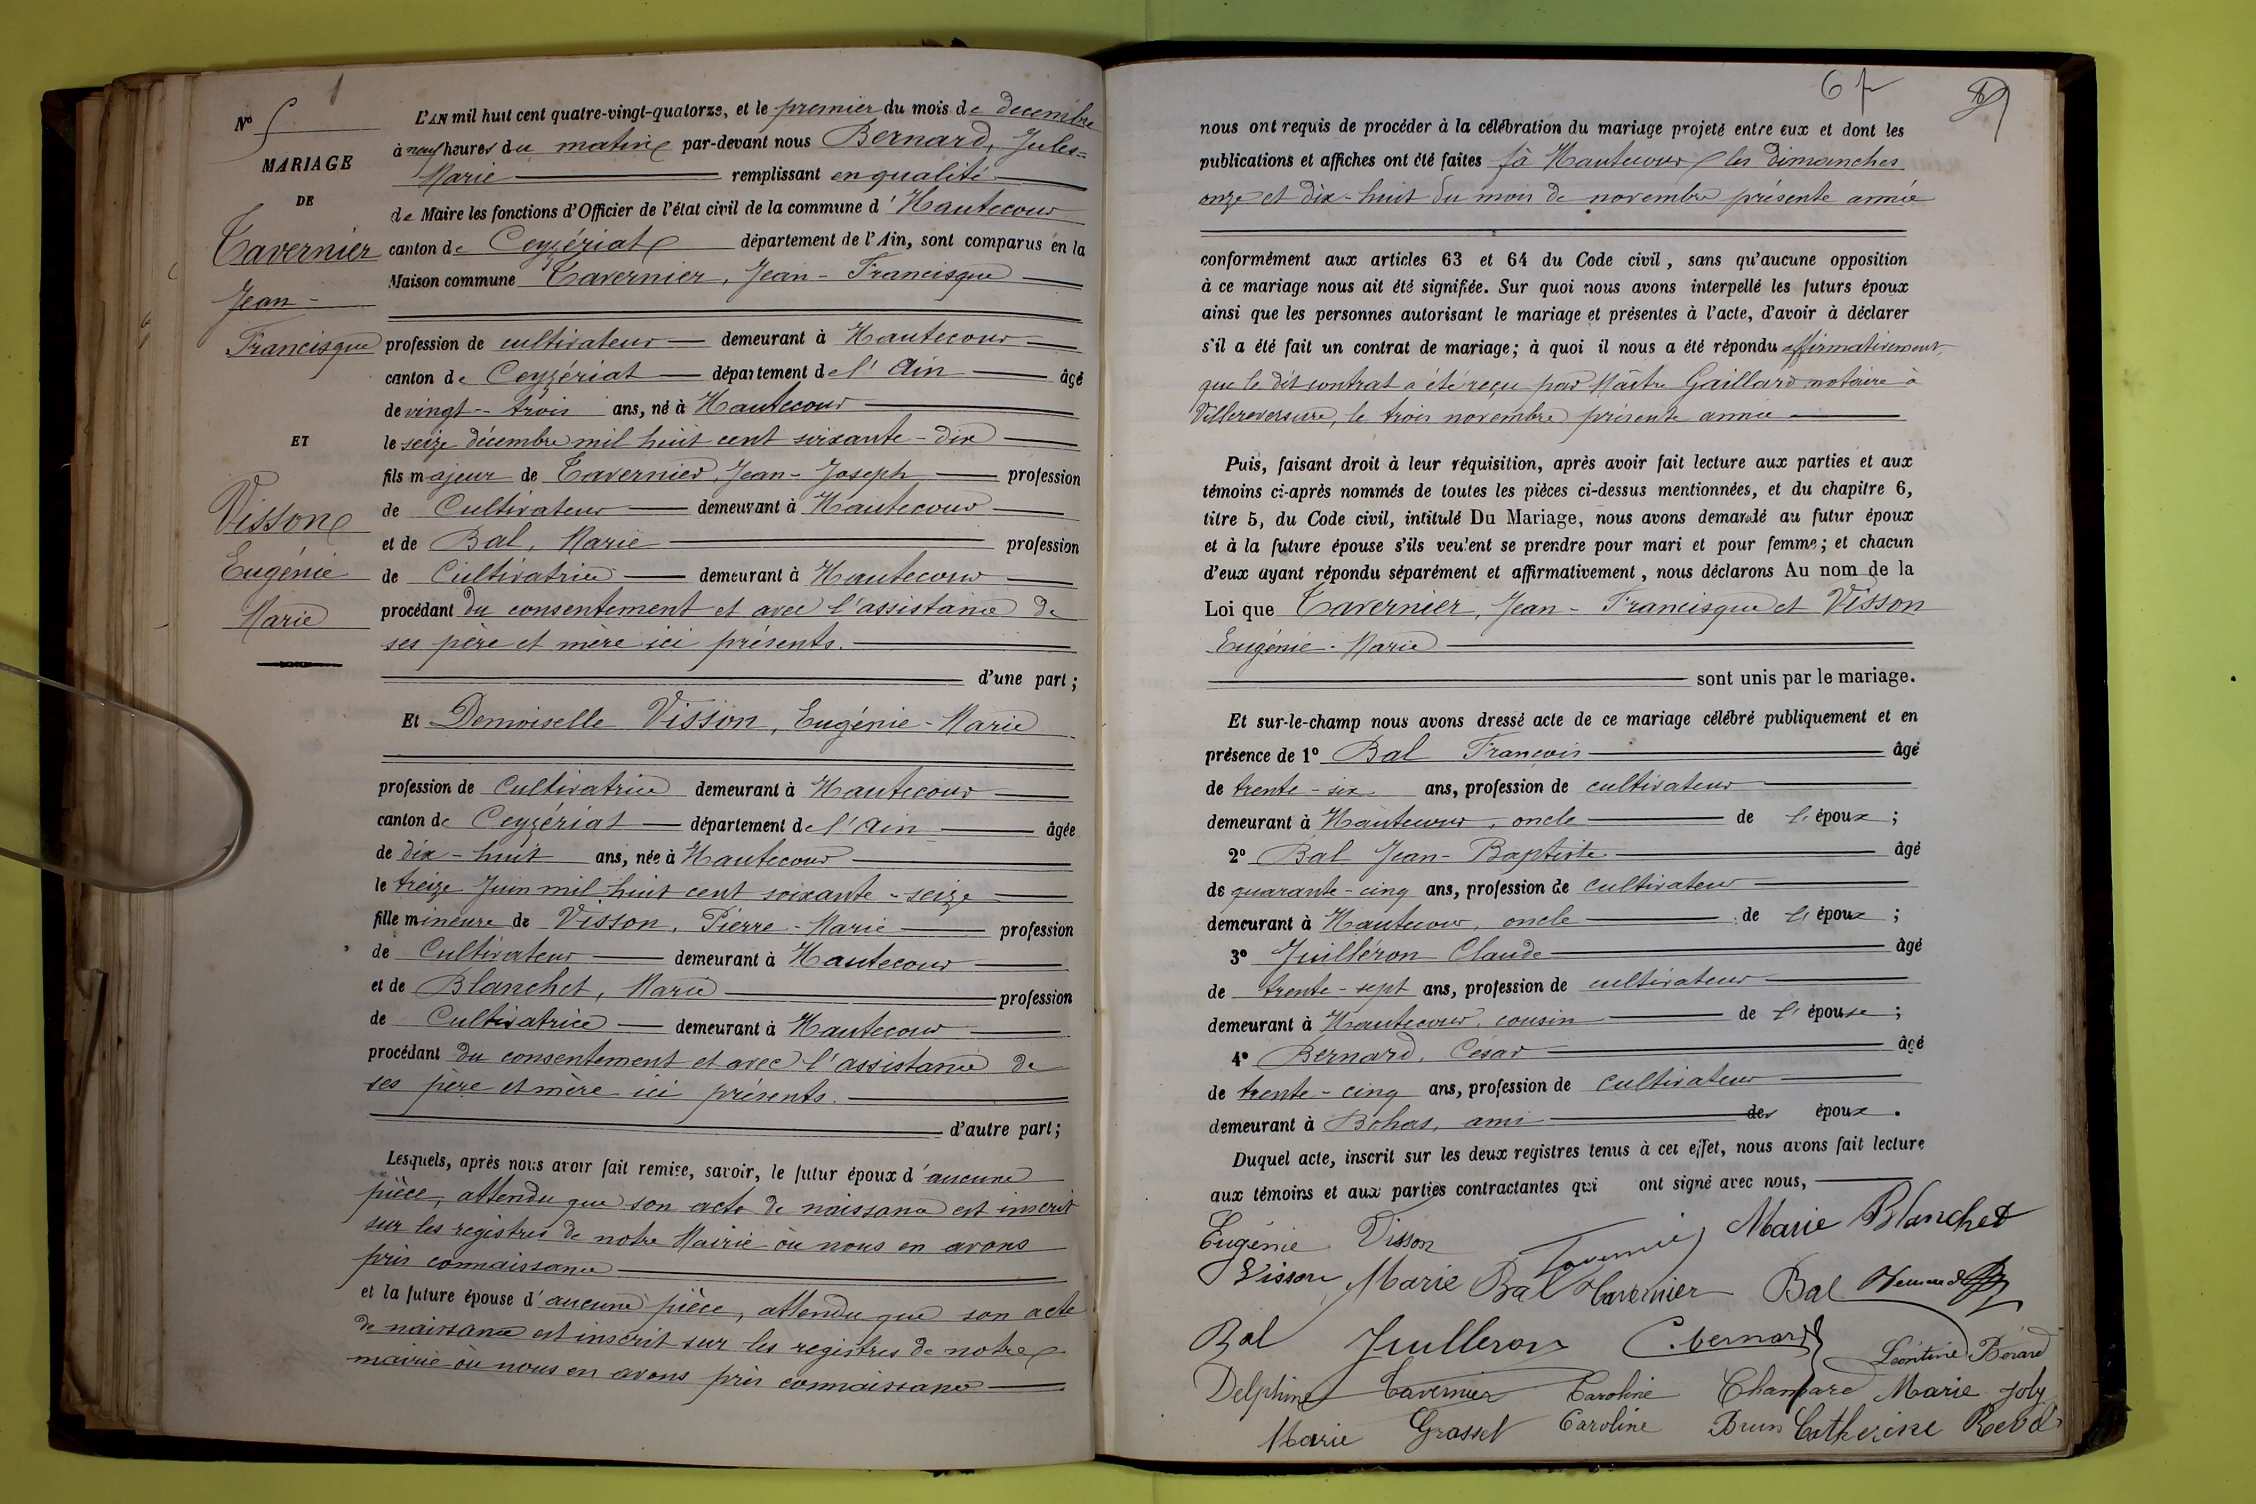 1
N° 5
MARIAGE
DE
Tavernier
Jean-
Francisque
ET
Visson
Eugénie
Marie
L'AN mil huit cent quatre-vingt-quatorze, et le premier du mois de decembre
à neuf heures du matin par-devant nous Bernard, Jules-
Marie remplissant en qualité
de Maire les fonctions d'Officier de l'état civil de la commune d'Hautecour
canton de Ceyzériat département de l'Ain, sont comparus en la
Maison commune Tavernier, Jean-Francisque
profession de cultivateur demeurant à Hautecour
canton de Ceyzériat département de l'Ain âgé
de vingt-trois ans, né à Hautecour
le seize décembre mil huit cent soixante-dix
fils majeur de Tavernier, Jean-Joseph profession
de Cultivateur demeurant à Hautecour
et de Bal, Marie profession
de Cultivatrice demeurant à Hautecour
procédant du consentement et avec l'assistance de
ses père et mère ici présents.
d'une part;
Et Demoiselle Visson, Eugénie-Marie
profession de Cultivatrice demeurant à Hautecour
canton de Ceyzériat département de l'Ain âgée
de dix-huit ans, née à Hautecour
le treize Juin mil huit cent soixante-seize
fille mineure de Visson, Pierre-Marie profession
de Cultivateur demeurant à Hautecour
et de Blanchet, Marie profession
de Cultivatrice demeurant à Hautecour
procédant du consentement et avec l'assistance de
ses père et mère ici présents.
d'autre part;
Lesquels, après nous avoir fait remise, savoir, le futur époux d'aucune
pièce, attendu que son acte de naissance est inscrit
sur les registres de notre Mairie où nous en avons
pris connaissance
et la future épouse d'aucune pièce, attendu que son acte
de naissance est inscrit sur les registres de notre
mairie où nous en avons pris connaissance
nous ont requis de procéder à la célébration du mariage projeté entre eux et dont les
publications et affiches ont été faites à Hautecour les dimanches
onze et dix-huit du mois de novembre présente année
conformément aux articles 63 et 64 du Code civil, sans qu'aucune opposition
à ce mariage nous ait été signifiée. Sur quoi nous avons interpellé les futurs époux
ainsi que les personnes autorisant le mariage et présentes à l'acte, d'avoir à déclarer
s'il a été fait un contrat de mariage; à quoi il nous a été répondu affirmativement,
que le dit contrat a été reçu par Maître Gaillard notaire à
Villereversure, le trois novembre présente année
Puis, faisant droit à leur réquisition, après avoir fait lecture aux parties et aux
témoins ci-après nommés de toutes les pièces ci-dessus mentionnées, et du chapitre 6,
titre 5, du Code civil, intitulé Du Mariage, nous avons demandé au futur époux
et à la future épouse s'ils veulent se prendre pour mari et pour femme; et chacun
d'eux ayant répondu séparément et affirmativement, nous déclarons Au nom de la
Loi que Tavernier, Jean-Francisque et Visson
Eugénie-Marie
sont unis par le mariage.
Et sur-le-champ nous avons dressé acte de ce mariage célébré publiquement et en
présence de 1° Bal François âgé
de trente-six ans, profession de cultivateur
demeurant à Hautecour, oncle de l'époux;
2° Bal Jean-Baptiste âgé
de quarante-cinq ans, profession de cultivateur
demeurant à Hautecour, oncle de l'époux;
3° Juilléron Claude âgé
de trente-sept ans, profession de cultivateur
demeurant à Hautecour, cousin de l'épouse;
4° Bernard, César âgé
de trente-cinq ans, profession de cultivateur
demeurant à Bohas, ami des époux.
Duquel acte, inscrit sur les deux registres tenus à cet effet, nous avons fait lecture
aux témoins et aux parties contractantes qui ont signé avec nous,
Eugénie Visson Tavernier Marie Blanchet
Visson Marie Bal Tavernier Bal
Bal Juilleron C. bernard Léontine Bérard
Delphine Tavernier Caroline Champard Marie Joly
Marie Grasset Caroline Brun Catherine